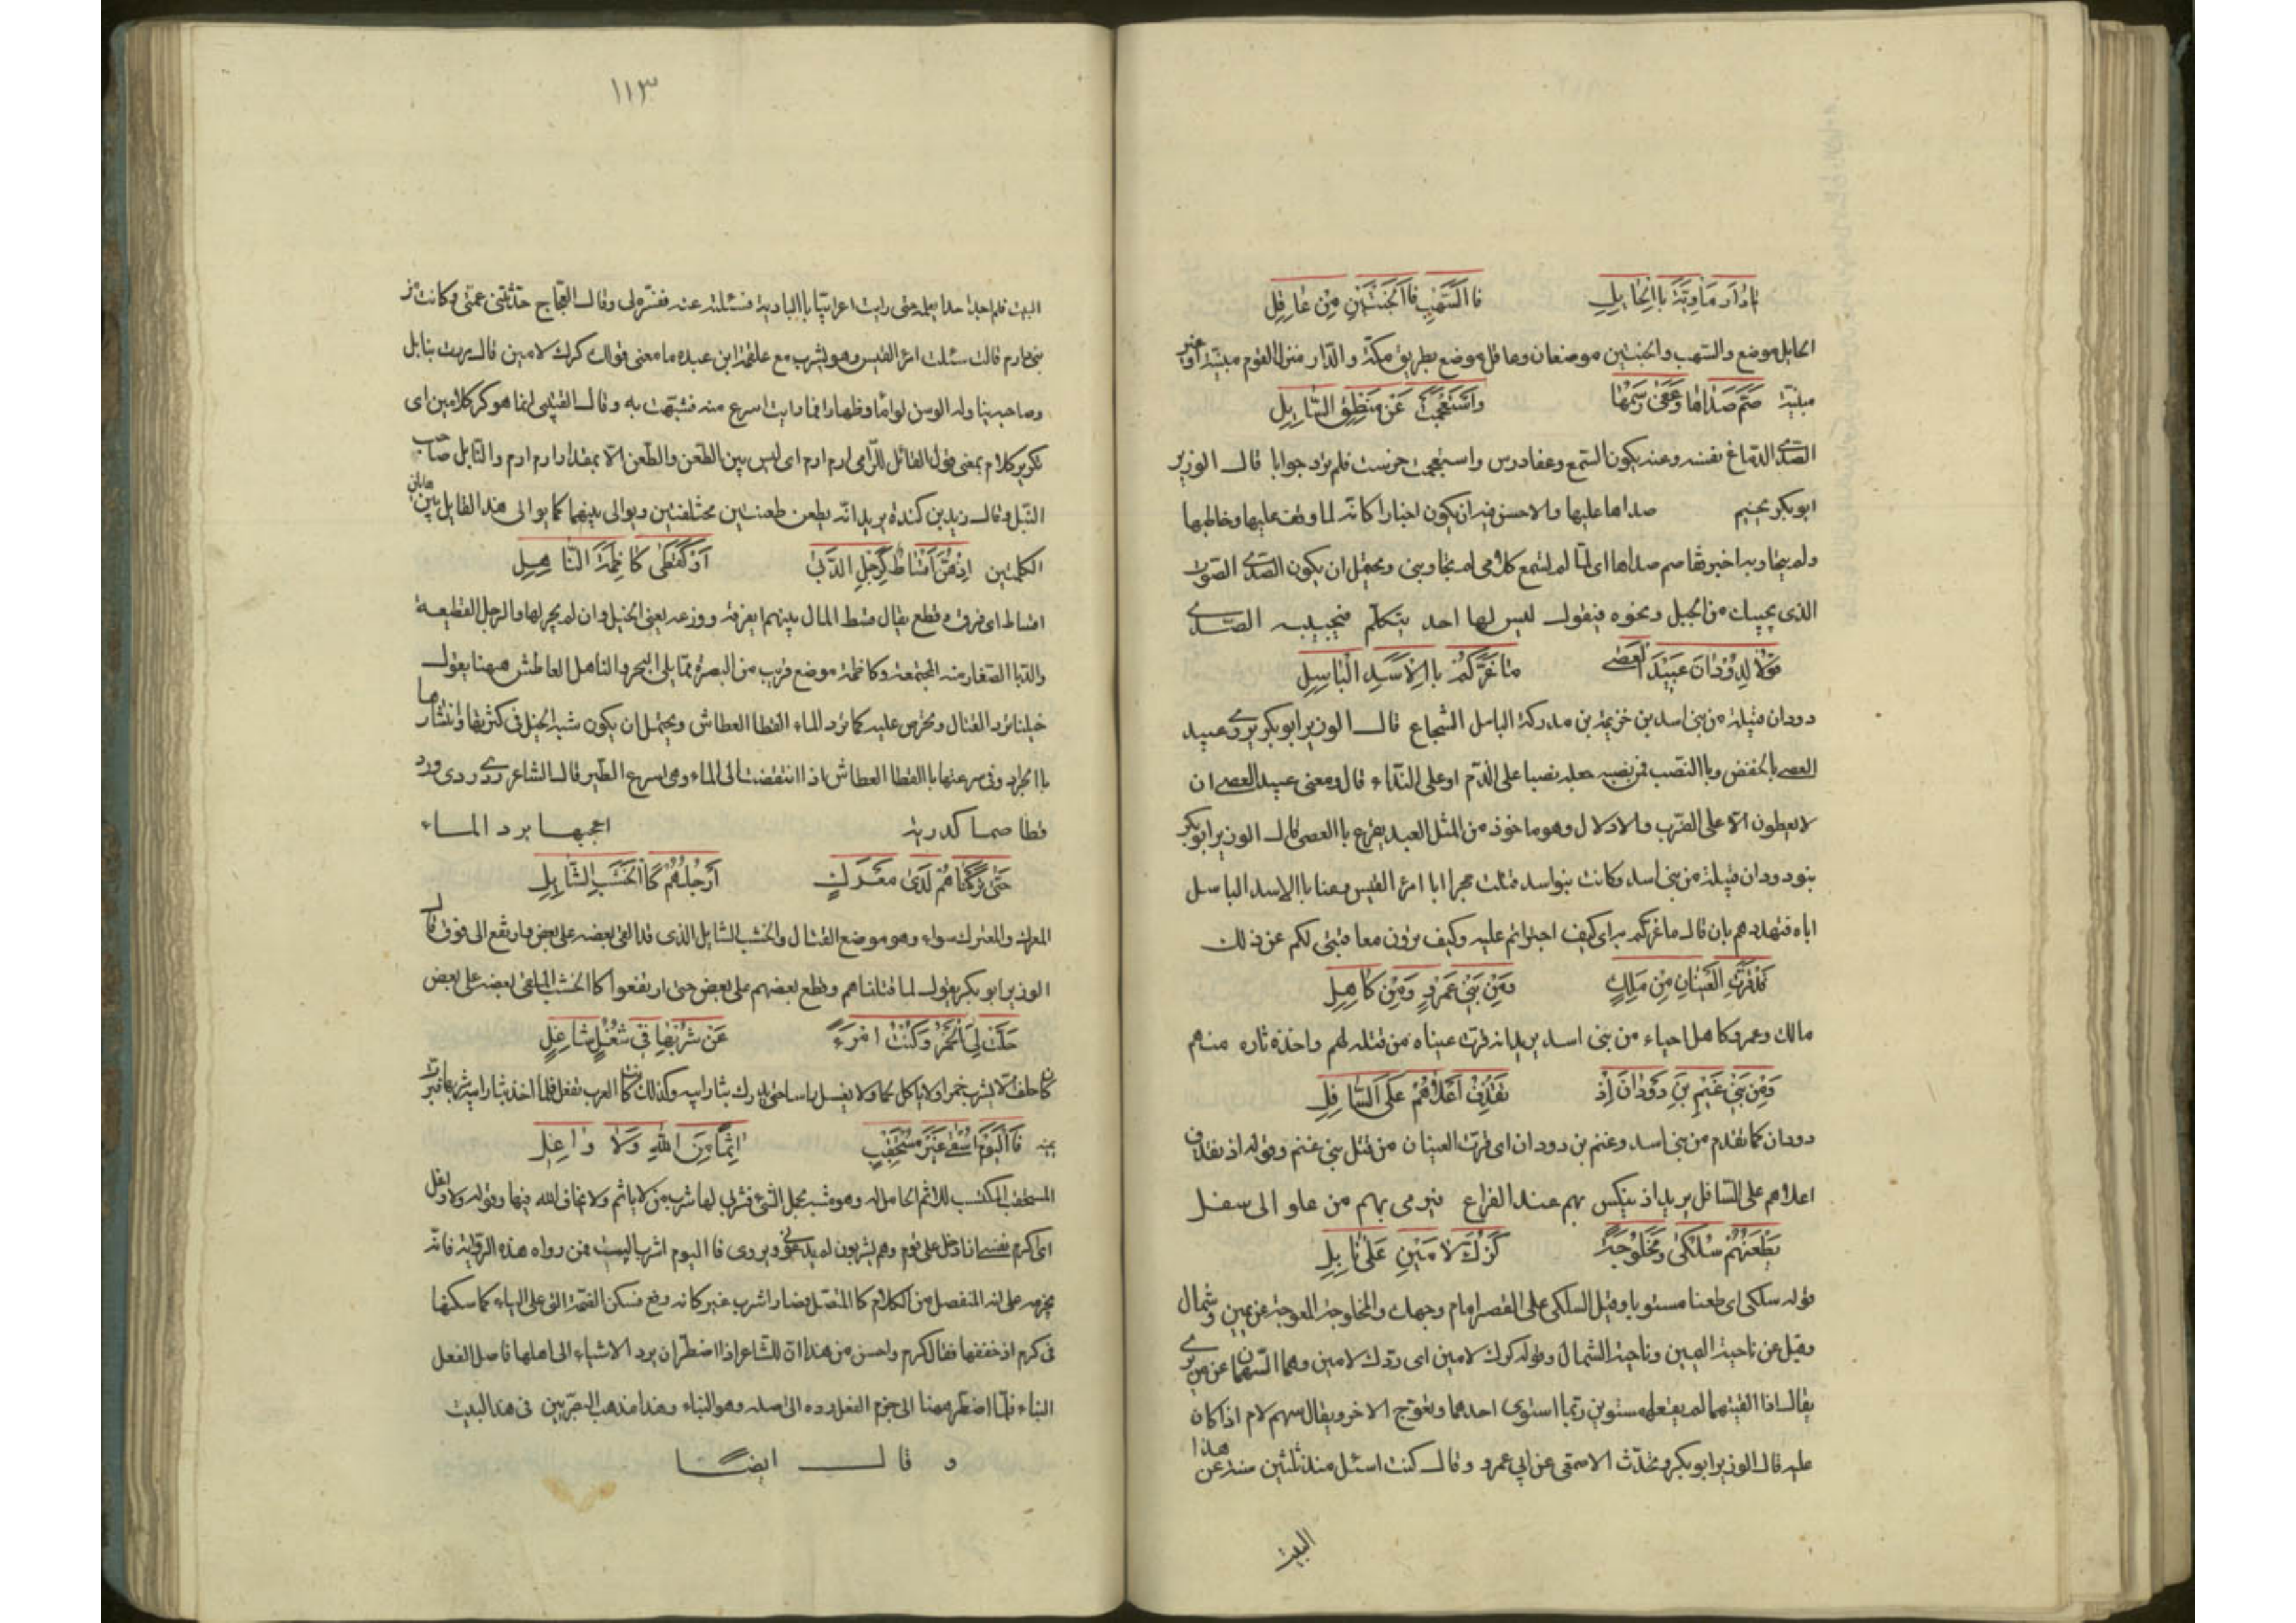 يا دار ماوية بالحايل فالسهب فالخبتين من عاقل
الحايل موضع والسهب والخبتين موضعان وعاقل موضع بطريق مكة والدار منزل القوم مبنية او غير
مبنية صم صداها وعفى رسمها واستعجمت عن منطق السايل
الصدى الدماغ نفسه وعنه يكون السمع وعفا درس واستعجمت خرست فلم ترد جوابا قال الوزير
ابو بكر صداها عليها والاحسن فيه ان يكون اخبارا كانه لما وقف عليها وخاطبها
ولم يتجاوبه اخبر بها صم صداها اى لما لم تسمع كلامى لم تجاوبنى ويحتمل ان يكون الصدى الصوت
الذى يجيبك من الجبل ونحوه فيقول ليس لها احد يتكلم فيجيبه الصدى
قولا لدودان عبيد العصى ما غركم بالاسد الباسل
دودان قبيلة من بنى اسد بن خزيمة بن مدركة الباسل الشجاع قال الوزير ابو بكر يروى عبيد
العصى بالخفض وبالنصب فمن نصبه جعله نصبا على الذم او على النداء قال ومعنى عبيد العصى ان
لا يعطون الا على الضرب والاذلال وهو ماخوذ من المثل العبد يقرع بالعصى قال الوزير ابو بكر
بنو دودان قبيلة من بنى اسد وكانت بنو اسد قتلت حجرا ابا امرئ القيس وعنا بالاسد الباسل
اباه فتهددهم بان قال ما غركم به اى كيف اجترأتم عليه وكيف ترون معاقبتى لكم عن ذلك
قد قرت العينان من مالك ومن بنى عمرو ومن كاهل
مالك وعمرو وكاهل احياء من بنى اسد يريد انه قرت عيناه من قتله لهم واخذه ثاره منهم
ومن بنى غنم بن دودان اذ نقذف اعلاهم على السافل
دودان كما تقدم من بنى اسد وغنم بن دودان اى قرت العينان من قتل بنى غنم وقوله اذ نقذف
اعلاهم على السافل يريد اذ ينكس بهم عند القراع فيرمى بهم من علو الى سفل
نطعنهم سلكى ومخلوجة كرك لامين على نابل
قوله سلكى اى طعنا مستويا وقيل السلكى على القصد امام وجهك والمخلوجة المعوجة عن يمين وشمال
وقيل عن ناحية اليمين وناحية الشمال وقوله كرك لامين اى ردك لامين وهما السهمان
يقال اذا القيتهما لم يقعا مستويين ربما استوى احدهما ويعوج الاخر ويقال سهم لام اذا كان
عليه قال الوزير ابو بكر وتحدث الاصمعى عن ابى عمرو وقال كنت اسئل منذ ثلثين سنة عن هذا
البيت
١١٣
البيت فلم اجد احدا يعلمه حتى رايت اعرابيا بالبادية فسئلته عنه ففسره لى وقال العجاج حدثتنى عمتى وكانت من
بنى دارم قالت سئلت امرئ القيس وهو يشرب مع علقمة ابن عبده ما معنى قولك كرك لامين قال مررت بنابل
وصاحبه يناوله الريش لواما وظهارا فما رايت اسرع منه فشبهت به وقال القتبى انما هو كر كلامين اى
تكرير كلام بمعنى قول القائل للرامى ارم ارم اى ليس بين الطعن والطعن الا بمقدار ارم ارم والنابل صاحب
النبل وقال زيد بن كندة يريد انه يطعن طعنتين مختلفتين ويوالى بينهما كما يوالى هذا القايل بين هاتين
الكلمتين اذ هن اقساط كرجل الدبى او كقطى كاظمة الناهل
اقساط اى فرق وقطع يقال قسط المال بينهم اى فرقه ووزعه يعنى الخيل وان لم يجر لها والرجل القطيعة
والدبا الصغار منه المجتمعة وكاظمة موضع قريب من البصرة مما يلى البحر والناهل العاطش هيهنا يقول
خيلنا ترد القتال وتحرص عليه كما ترد الماء القطا العطاش ويحتمل ان يكون شبه الخيل فى كثرتها وانتشارها
بالجراد وفى سرعتها بالقطا العطاش اذا انتقضت الى الماء وهى اسرع الطير قال الشاعر ردى ردى ورد
قطا صما كدرية اعجبها برد الماء
حتى تركناهم لدى معرك ارجلهم كالخشب الشايل
المعرك والمعترك سواء وهو موضع القتال والخشب الشايل الذى قد القى بعضه على بعض وارتفع الى فوق قال
الوزير ابو بكر يقول لما قتلناهم وقطع بعضهم على بعض حتى ارتفعوا كالخشب الملقى بعضه على بعض
حلت لى الخمر وكنت امرء عن شربها فى شغل شاغل
كان حلف الا يشرب خمرا ولا ياكل لحما ولا يغسل راسا حتى يدرك بثار ابيه وكذلك كانت العرب تفعل فلما اخذ بثار ابيه شربها فبر
يمينه فاليوم اسقى غير مستحقب اثما من الله ولا واغل
المستحقب المكتسب للاثم الحامل له وهو مشبه بحمل الشئ فشربى لها شرب من لا ياثم ولا يخاف الله فيها وقوله ولا واغل
اى اكرم نفسى ان ادخل على قوم وهم يشربون لم يدعونى ويروى فاليوم اشرب البيت فمن رواه هذه الرواية فانه
يجزمه على انه المنفصل من الكلام كالمتصل فصار اشرب غير كانه رفع فسكن الضمة التى على الباء كما سكنها
فى كرم اذ خففها فقال كرم واحسن من هذا ان للشاعر اذا اضطر ان يرد الاشياء الى اصلها فاصل الفعل
البناء فلما اضطر هيهنا الى جزم الفعل رده الى اصله وهو البناء وهذا مذهب البصريين فى هذا البيت
وقال ايضا